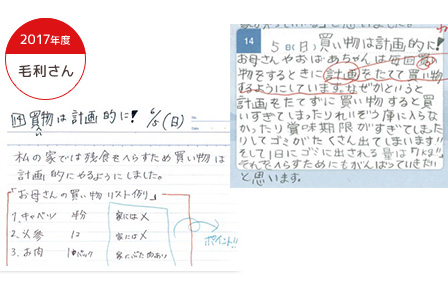 2017年度
毛利さん
14 買物は計画的に! 6/5(日)
い
私の家では残食をへらすため買い物は
計画的にやるようにしました。
「お母さんの買い物リスト(例)」
1、キャベツ 家には×
2、人参 1コ 家には×
3、お肉 1パック 家にぶた肉あり
ポイント!!
14
5日(日) 買い物は計画的に!
お母さんやおばあちゃんは毎回買い
物をするときに計画をたてて買い物
するようにしています。なぜかというと
計画をたてずに買い物すると買
いすぎてしまったりれいぞう庫に入らな
かったり賞味期限がすぎてしまった
りしてゴミがたくさん出てしまいます!!
そして1日にゴミに出される量は
それをへらすためにもがんばっていきたい
と思います。